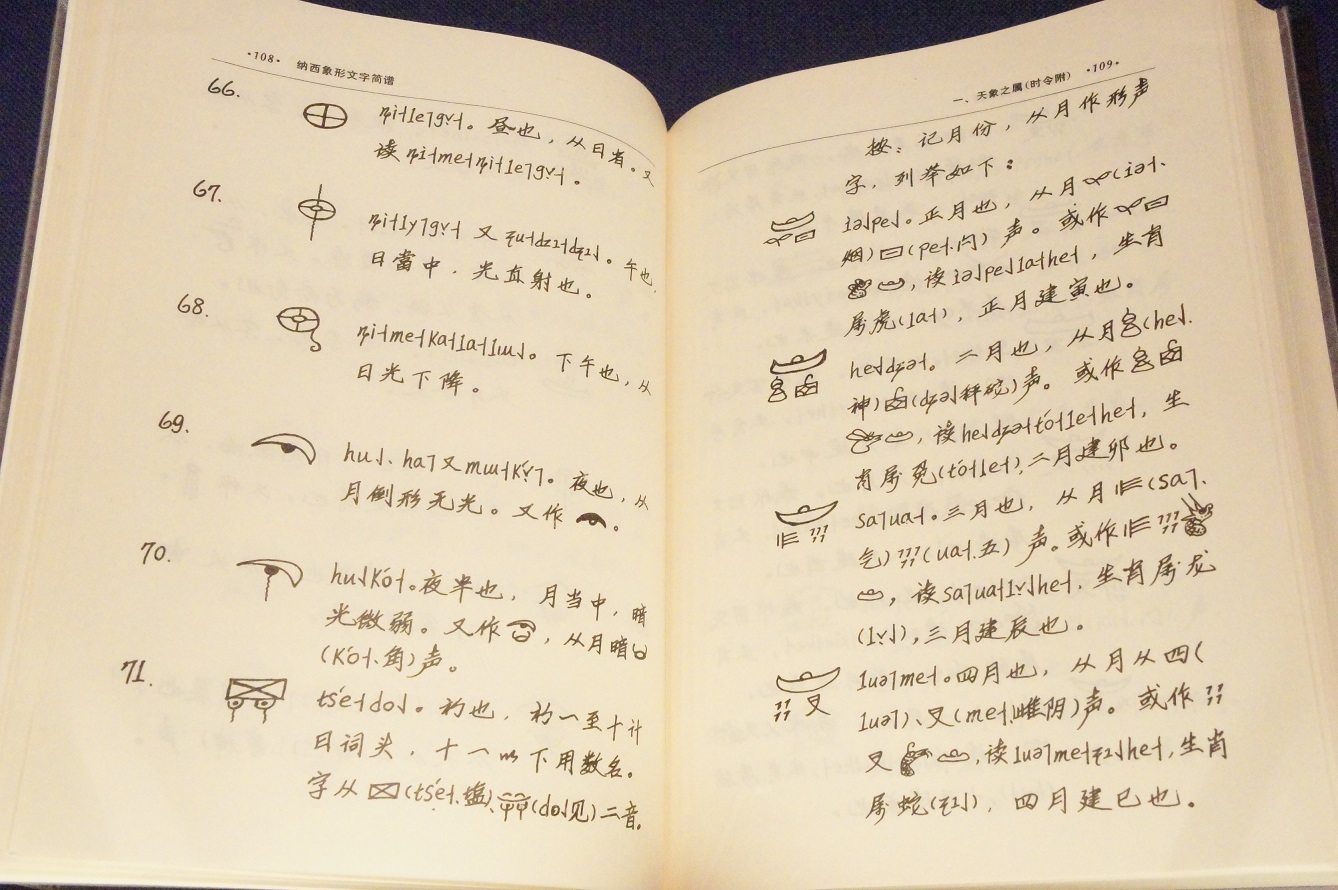 ·108· 纳西象形文字简谱
66.
ȵi˧le˥gv̩˧。昼也，从日省。又
读ȵi˧me˧ȵi˧le˥gv̩˧。
67.
ȵi˧ly˥gv̩˧又
。午也，
日當中，光直射也。
68.
ȵi˧me˧ka˧la˧lɯ˩。下午也，从
日光下降。
69.
hu˩、ha˥又mɯ˧kʻv̩˥。夜也，从
月倒形无光。又作 。
70.
hu˩kʻo˧。夜半也，月当中，暗
光微弱。又作 ，从月暗
(kʻo˧、角)声。
71.
tsʻe˧do˩。初也，初一至十计
日词头，十一以下用数名。
字从 (tsʻe˧、塩)、 (do˩见)二音。
一、天象之属(时令附) ·109·
按：记月份，从月作形声
字，列举如下：
iə˩pe˩。正月也，从月 (iə˧、
烟) (pe˧、闩)声。或作
，读iə˩pe˩la˧he˧，生肖
属虎(la˧)，正月建寅也。
he˩dʐə˧。二月也，从月 (he˩、
神) (dʐə˩秤砣)声。或作
，读he˩dʐə˧tʻo˧le˧he˧，生
肖属兔(tʻo˧le˧)，二月建卯也。
sa˥ua˧。三月也，从月 (sa˥、
气) (ua˧、五)声。或作
，读sa˥ua˧lv̩˩he˧，生肖属龙
(lv̩˩)，三月建辰也。
luə˥me˧。四月也，从月从四(
luə˥)、 (me˧雌阴)声。或作
，读luə˥me˧ʐɿ˩he˧，生肖
属蛇(ʐɿ˩)，四月建巳也。